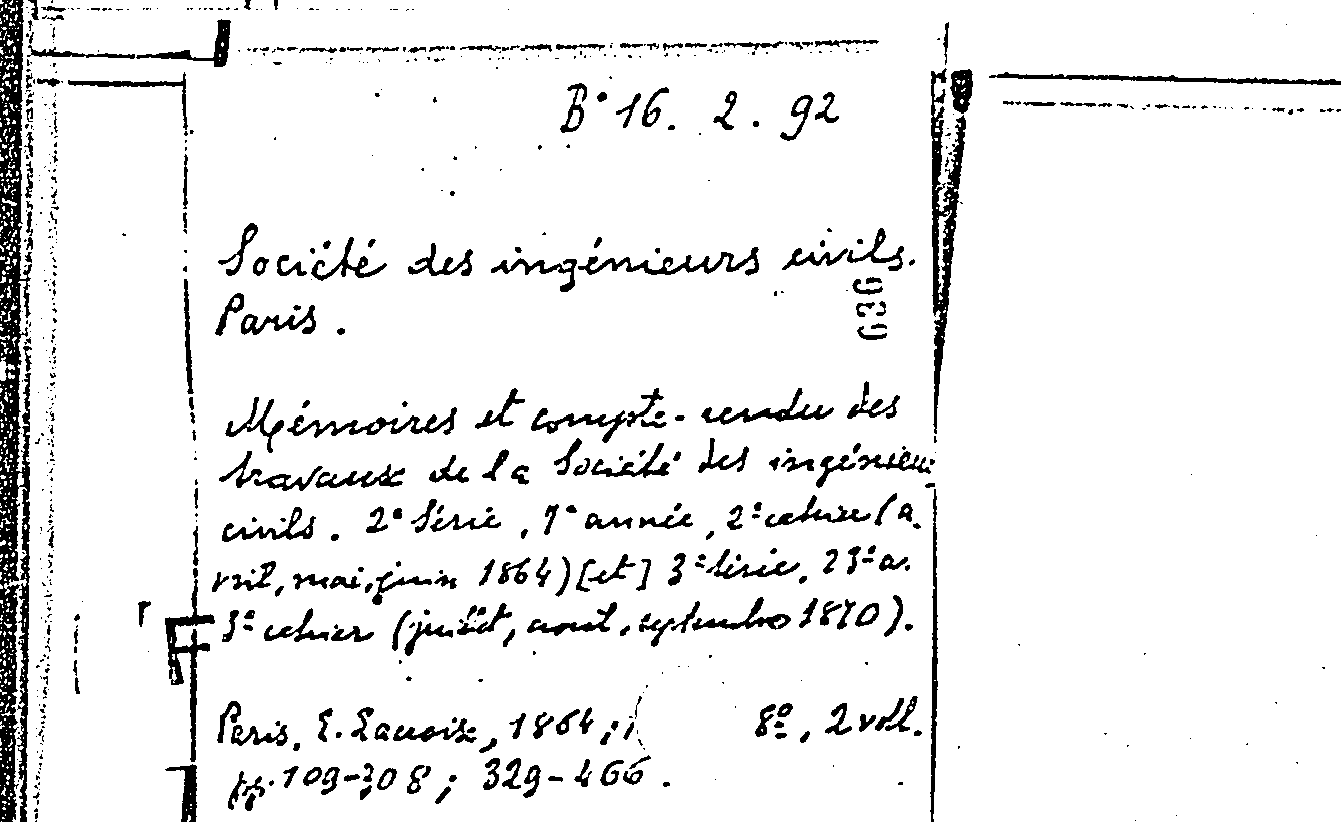 B° 16. 2. 92
Société des ingénieurs civils.
Paris.
639
Mémoires et compte-rendu des
travaux de la Société des ingénieu
civils. 2e Série, 7e année, 2e cahier (a.
vril, mai, juin 1864) [et] 3e série, 23e a.
3e cahier (juillet, aout, septembre 1870).
Paris, E. Lacroix, 1864; 8º, 2 voll.
pp. 109-308; 329-466.